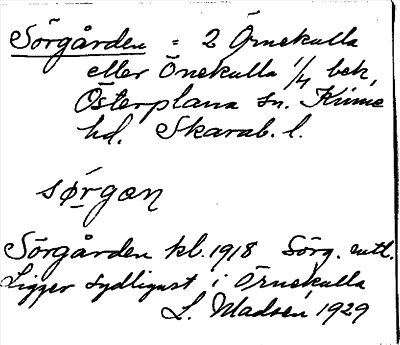 Sörgården = 2 Örnekulla
eller Önekulla 1/4 bek,
Österplana sn. Kinne
hd. Skarab. l.
sørgan
Sörgården kl. 1918 Sörg. uttl.
Ligger sydligast i Örnekulla
L. Madsén 1929